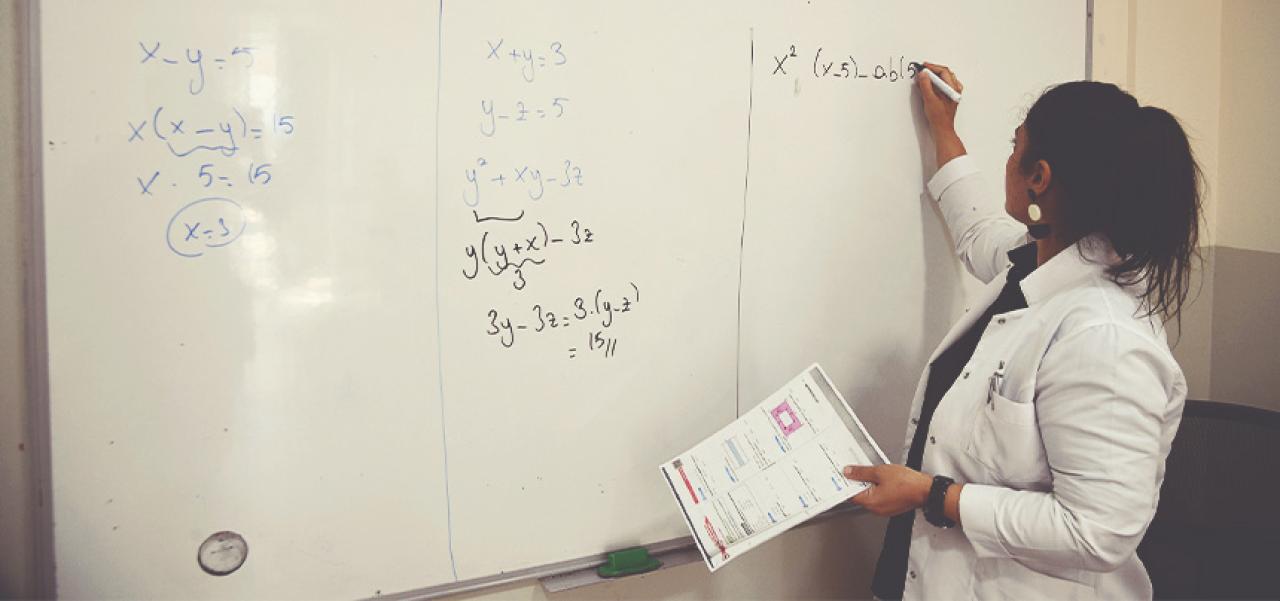 x - y = 5
x(x - y) = 15
x · 5 = 15
x = 3
x + y = 3
y - z = 5
y² + xy - 3z
y(y + x) - 3z
3
3y - 3z = 3·(y - z)
= 15//
x² (x - 5) - ab(5